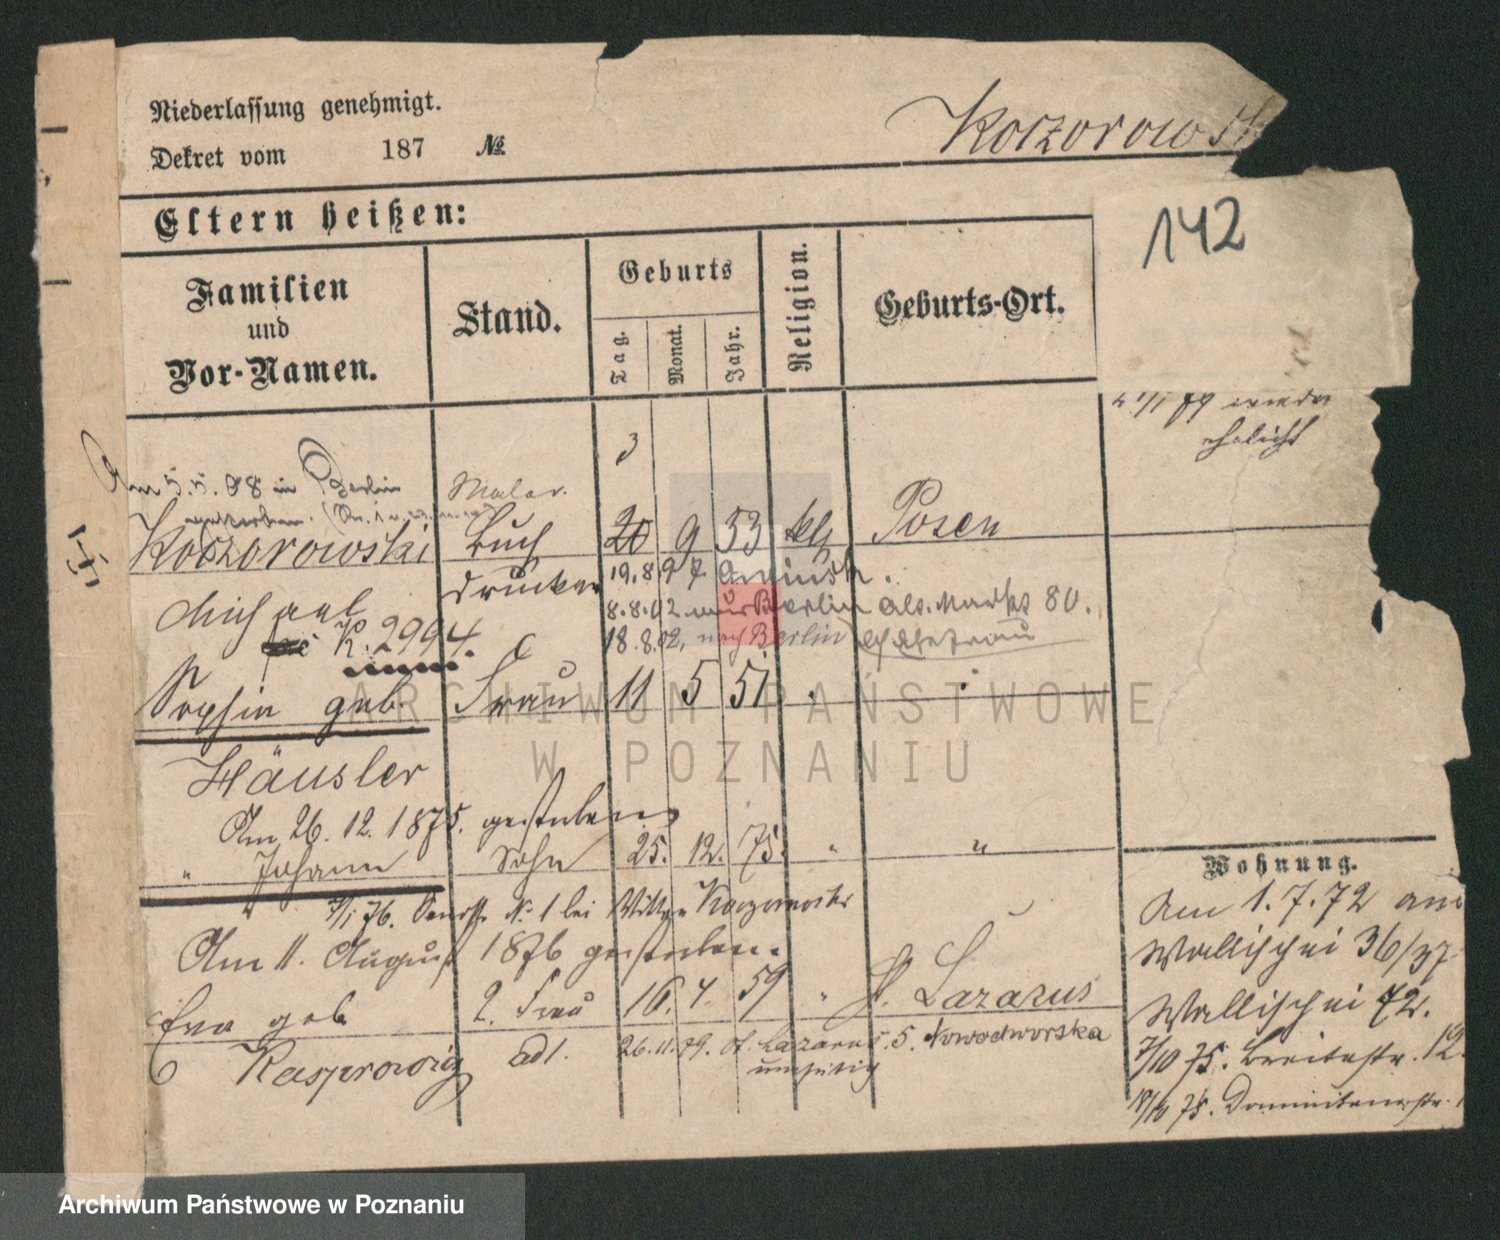 Niederlassung genehmigt.
Dekret vom 187 №
Koczorowsk
Eltern heißen:
142
Familien und Vor-Namen.
Stand.
Geburts
Tag.
Monat.
Jahr.
Religion.
Geburts-Ort.
79
ehelicht
3
Am 5.5.08 in Berlin
Maler.
gestorben.
Koczorowski Buch 20 9 53 klg Posen
drucker 19.8.97
Michael
8.8.02 aus Berlin Markt 80.
K. 2994. 18.8.02, nach Berlin
Sophie geb. Frau 11 5 51
Häusler
Am 26.12.1875. gestorben
" Johann Sohn 25. 12. 75. " "
Wohnung.
Am 1.7.72 aus
7/1 76. № 1 bei Koczorowski
Wallischei 36/37
Am 11. August 1876 gestorben.
Eva geb 2. Frau 16. 4. 59 " St. Lazarus
Wallischei 72.
Kasprowig adl. 26.11.79. St. Lazarus 5. Nowodworska
umseitig
7/10 75. Breitestr. 12.
75. Dominikanerstr. 1
ARCHIWUM PAŃSTWOWE
W POZNANIU
Archiwum Państwowe w Poznaniu